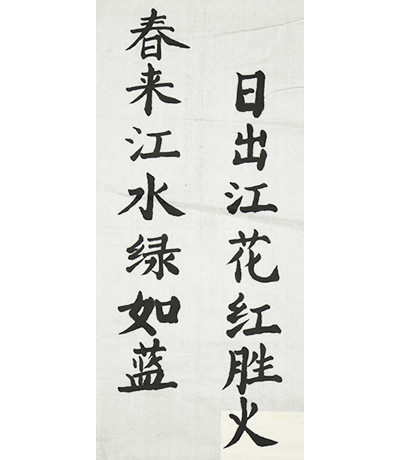 日出江花红胜火
春来江水绿如蓝